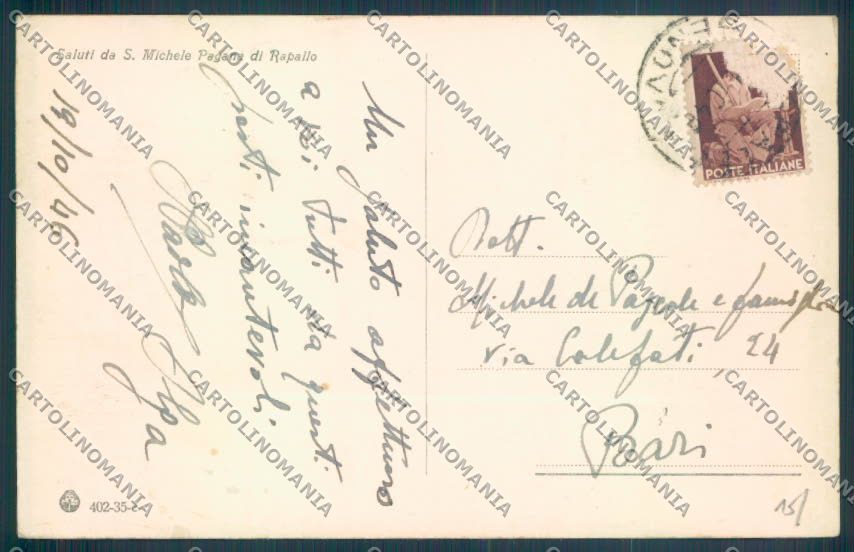 Saluti da S. Michele Pagana di Rapallo
19/10/46
Un saluto affettuoso
a voi tutti da questi
posti incantevoli.
Carlo Olga
GENOVA
POSTE ITALIANE
Dott.
Michele de Pascale e famiglia
Via Calefati 24
Bari
402-35-c
15/
CARTOLINOMANIA